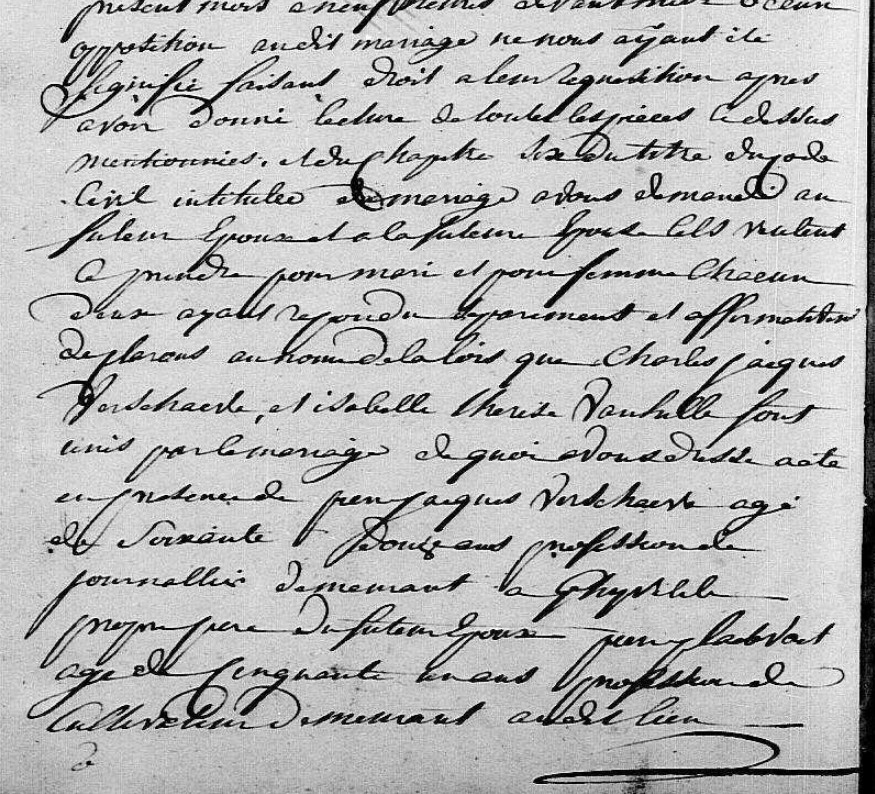 present mois a neuf heures devant midi aucun
opposition audit mariage ne nous ayant ete
signifié faisant droit a leur requisition apres
avoir donné lecture de toutes les pieces ci dessus
mentionnies. et du chapitre six du titre du code
Civil intitulee du mariage avons demandé au
futeur Epoux et a la futeure Epouse sils veulent
se prendre pour mari et pour femme Chacun
deux ayant repondu separement et affirmativem
declarons au nom de la lois que Charles jacques
Verschaeve, et isabelle therese Vanhille sont
unis par le mariage de quoi avons dressé acte
en presence de pierre jacques Verschaeve agé
de Soixante douze ans profession de
journallier demeurant a Ghyvelde
propre pere du futeur Epoux pierre
age de Cinquante un ans profession de
Cultivateur demeurant audit lieu